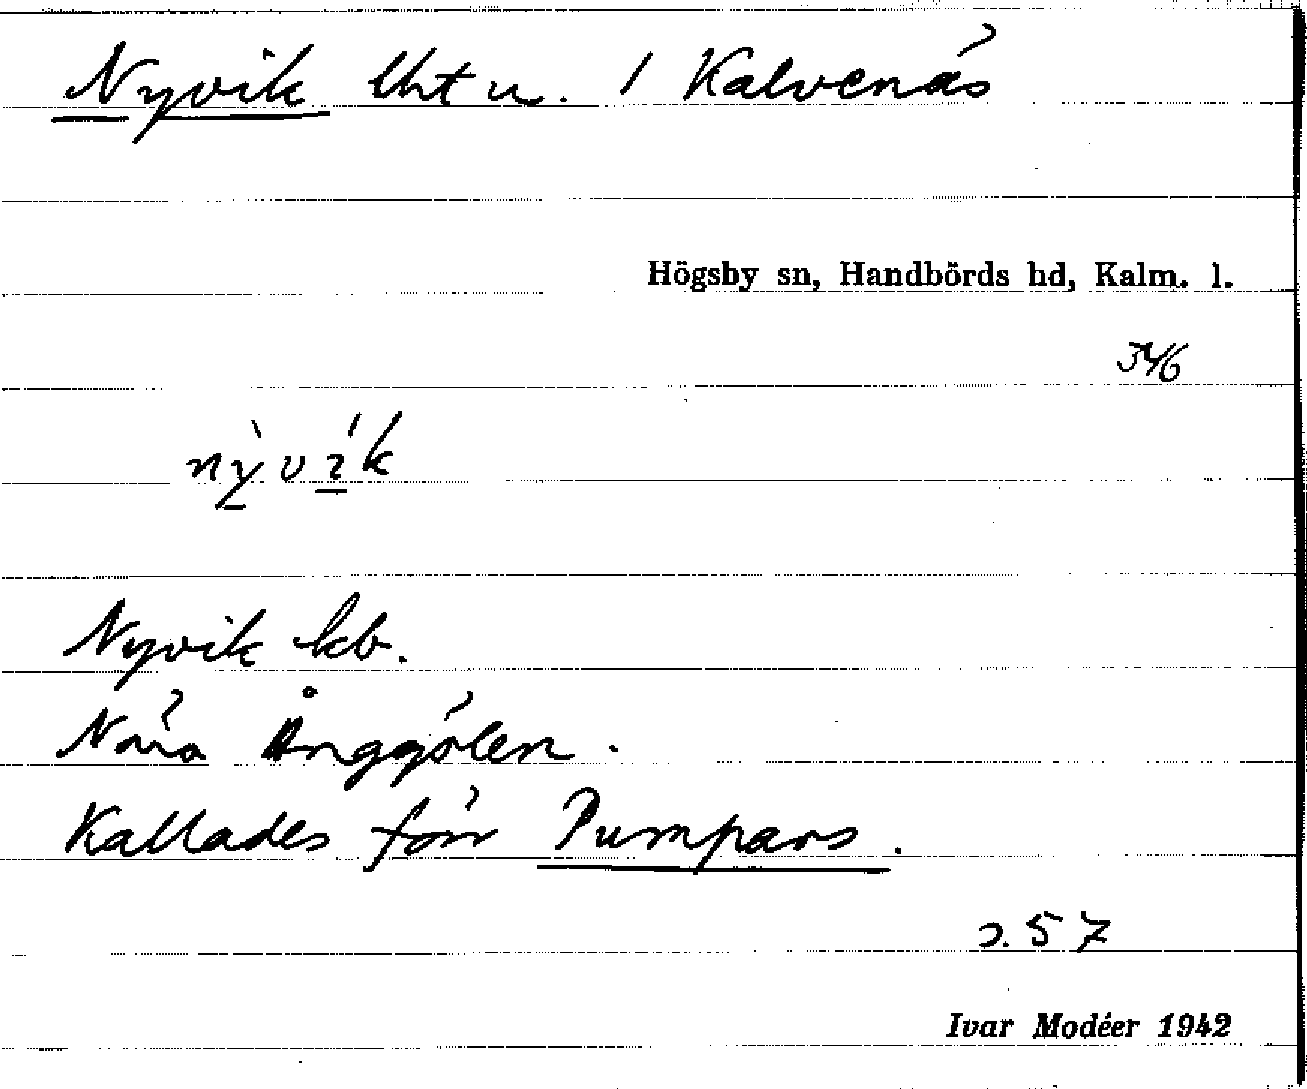 Nyvik lht u. / Kalvenäs
Högsby sn, Handbörds hd, Kalm. l.
nỳvík
Nyvik kb.
Nära Änggölen.
Kallades förr Pumpars.
s. 57
Ivar Modéer 1942